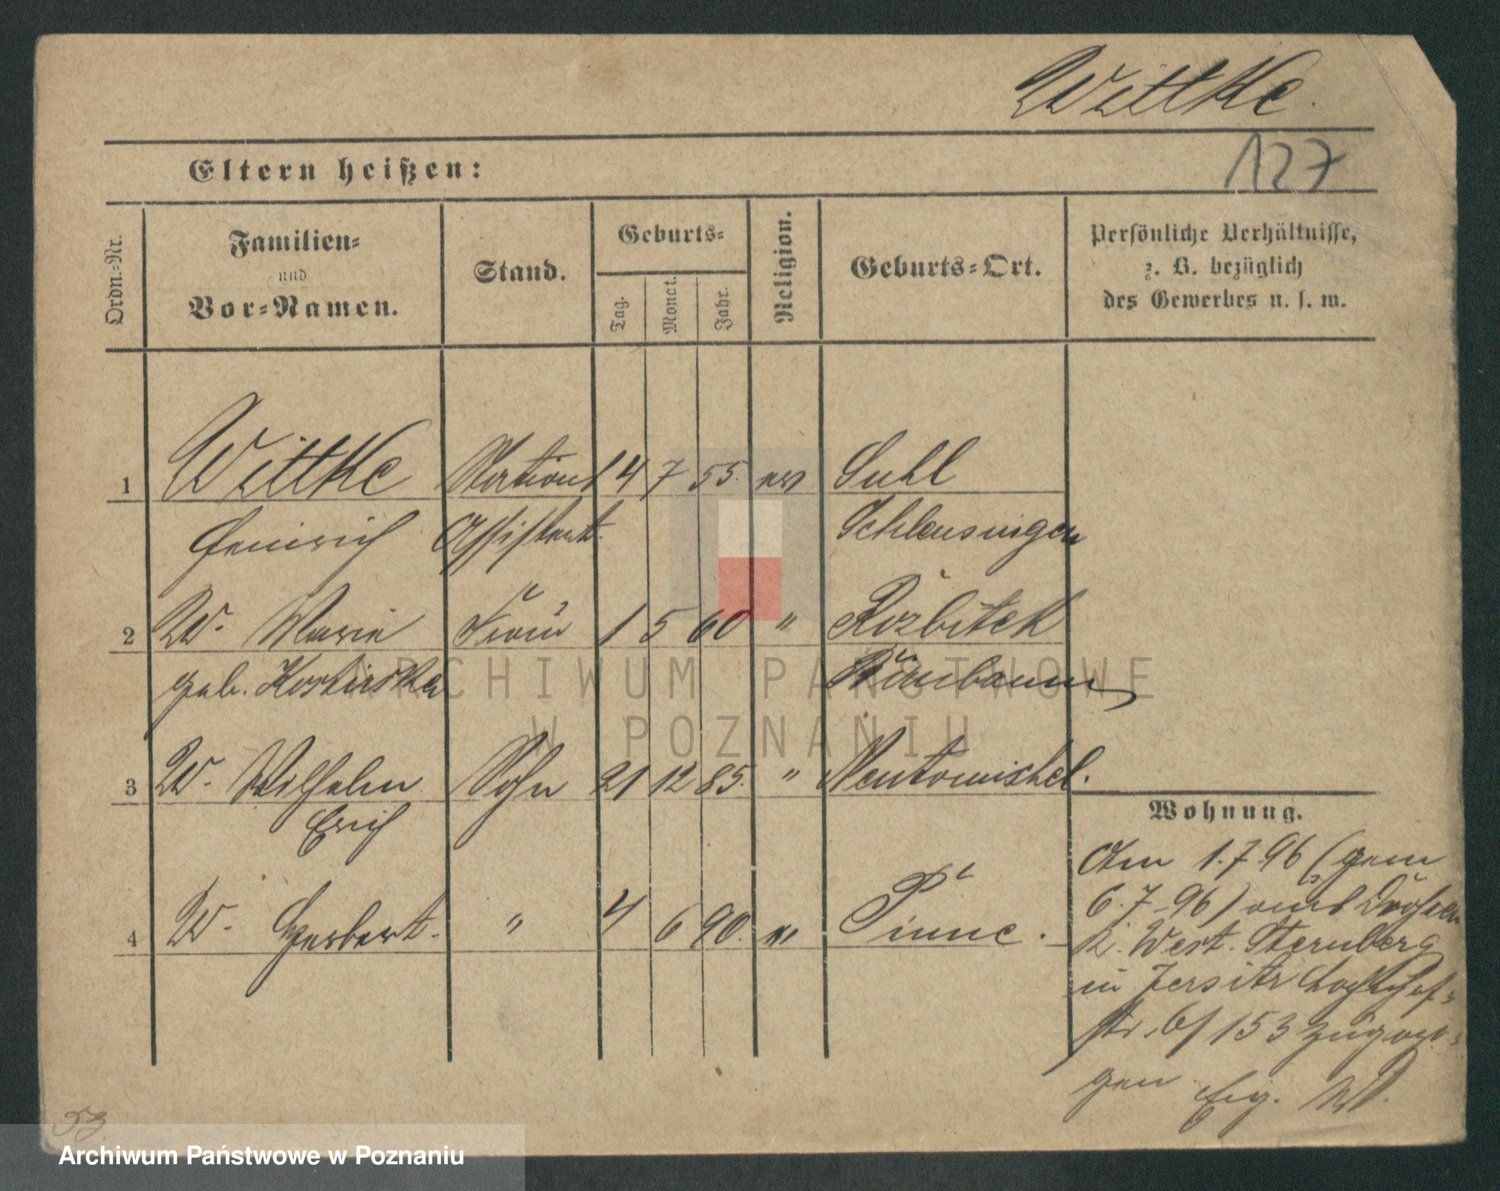 Wittke.
127
Eltern heißen:
Ordn.-Nr.
Familien-
und
Vor-Namen.
Stand.
Geburts-
Tag.
Monat.
Jahr.
Religion.
Geburts-Ort.
Persönliche Verhältnisse,
z. B. bezüglich
des Gewerbes u. s. w.
1 Wittke Stations 14 7 55. ev Suhl
Heinrich Assistent. Schleusingen
2 W. Marie Frau 1 5 60 " Rozbitek
geb. Birnbaum
3 W. Wilhelm Sohn 21 12 85. " Neutomischel.
Erich
4 W. Herbert. " 4 6 90. ev Pinne.
Wohnung.
Am 1.7.96 (gem
6.7.96) aus
K. West. Sternberg
in Jersitz
str. 153 zugezo-
gen
53
ARCHIWUM PAŃSTWOWE
W POZNANIU
Archiwum Państwowe w Poznaniu